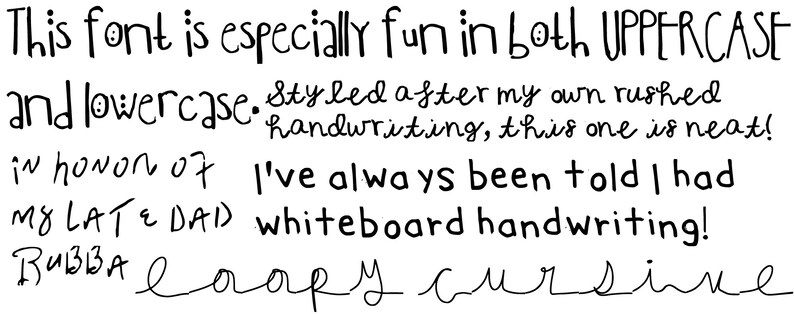 This font is especially fun in both UPPERCASE
and lowercase.
Styled after my own rushed
handwriting, this one is neat!
IN HONOR OF
MY LATE DAD
BUBBA
I've always been told I had
whiteboard handwriting!
loopy cursive